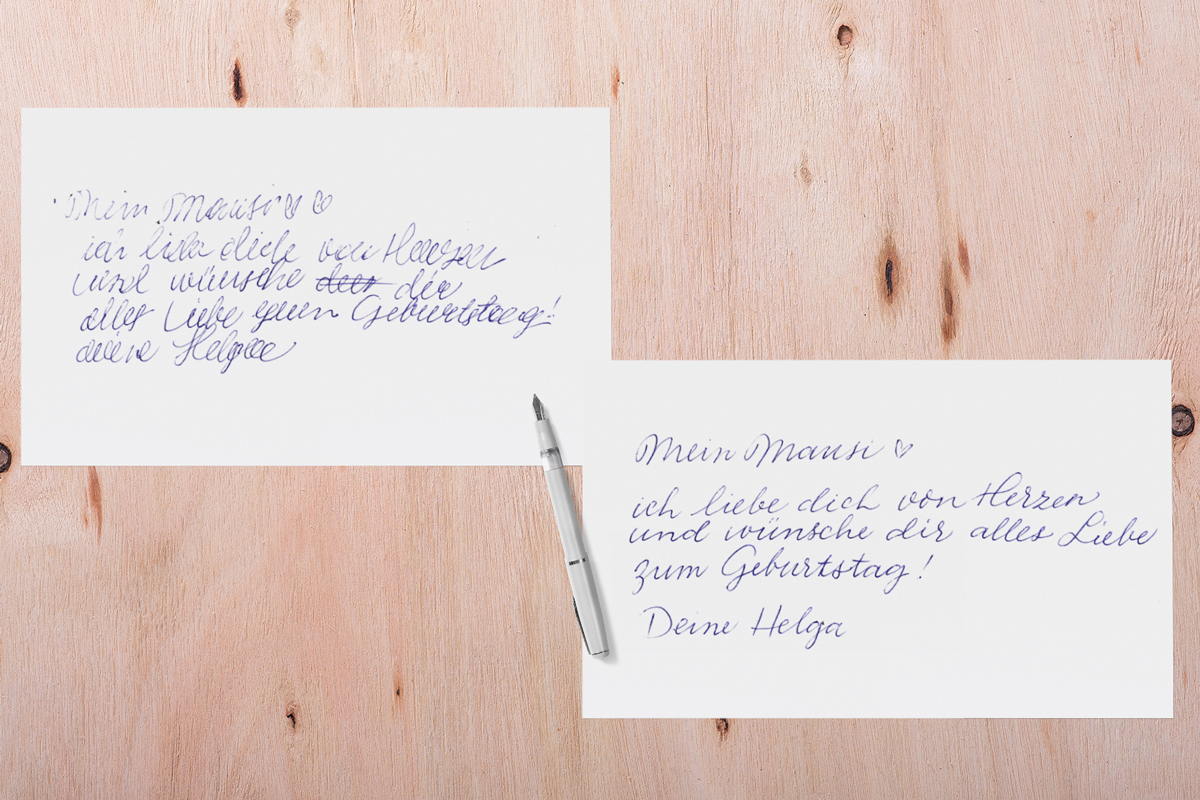 Mein Mausi ♡ ♡
ich liebe dich von Herzen
und wünsche das dir
alles Liebe zum Geburtstag!
deine Helga
Mein Mausi ♡
ich liebe dich von Herzen
und wünsche dir alles Liebe
zum Geburtstag!
Deine Helga